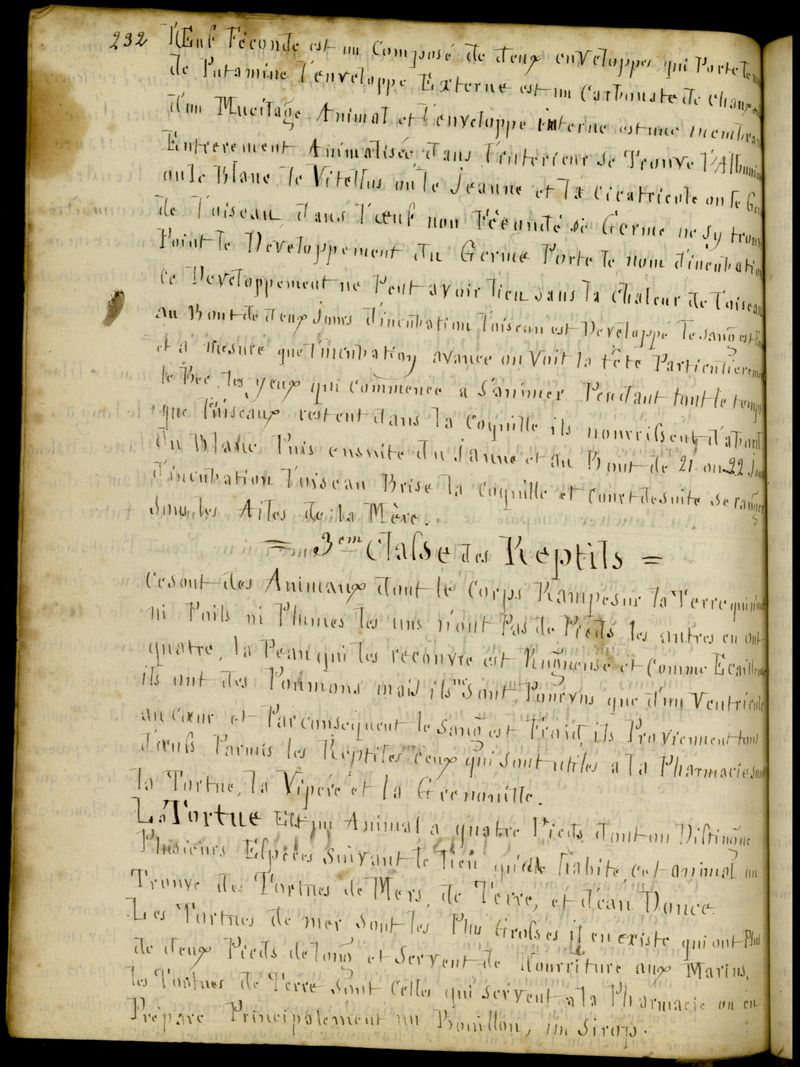 232
L'Œuf Féconde est un Composé de deux enveloppes qui Porte le nom
de Patamine l'enveloppe Externe est un Carbonate de Chaux
d'un Mucilage Animal et l'enveloppe interne est une membrane
Entierement Animalisée, dans l'interieur se Trouve l'Albumine
ou le Blanc, le Vitellus ou le Jeaune et la Cicatricule ou le Ger
de l'oiseau, dans l'œuf non Fécondé se Germe ne s'y trouve
Point le Developpement du Germe Porte le nom d'incubation
ce Developpement ne Peut avoir lien sans la Chaleur de l'oiseau
au Bout de deux Jours d'incubation l'oiseau est Developpé le sang est
et a mesure que l'incubation avance on voit la tête Particulierement
le Bec, les yeux qui commence a s'animer Pendant tout le temps
que l'oiseaux restent dans la Coquille ils nourrissent d'abord
du Blanc Puis ensuite du jaune et au Bout de 21 ou 22 Jours
d'incubation l'oiseau Brise la Coquille et Court de suite se ranger
sous les Ailes de la Mère.
= 3em Classe des Reptils =
Ce sont des Animaux dont le Corps Rampe sur la Terre qui n'ont
ni Poils ni Plumes les uns n'ont Pas de Pieds, les autres en ont
quatre, la Peau qui les recouvre est Rugueuse et Comme Ecailleuse
ils ont des Poumons mais ils ne sont Pourvus que d'un Ventricule
au Cœur et Par consequent le Sang est Froid, ils Proviennent tous
d'œufs. Parmis les Reptiles Ceux qui sont utiles a la Pharmacie sont
la Tortue, la Vipére et la Grenouille.
La Tortue Est un Animal a quatre Pieds dont on Distingue
Plusieurs Espèces Suivant le lieu qu'elle habite, cet animal on
Trouve des Tortues de Mers, de Terre, et d'eau Douce
Les Tortues de mer sont les Plus Grosses il en existe qui ont Plus
de deux Pieds de long et Servent de Nourriture aux Marins,
les Tortues de Terre sont Celles qui servent a la Pharmacie on en
Prépare Principalement un Bouillon, un Sirop.